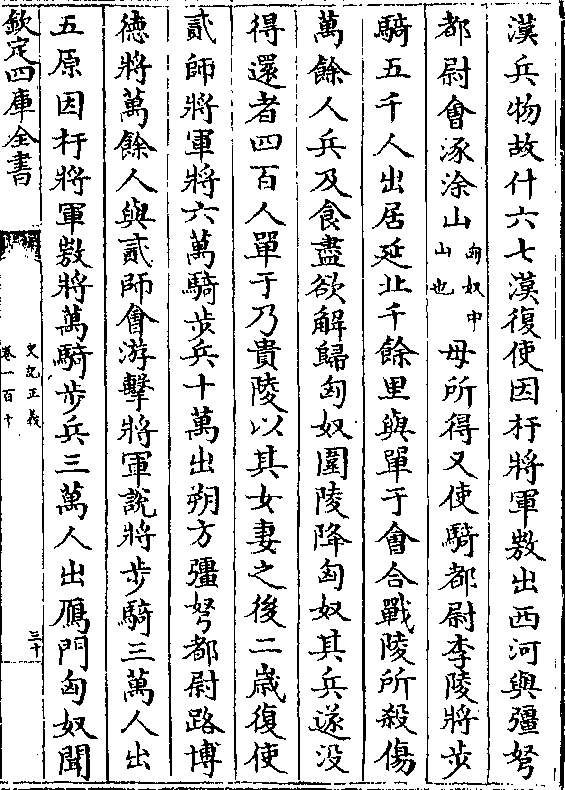 漢兵物故什六七漢復使因杅將軍敖出西河與彊弩
都尉會涿涂山匈奴中山也毋所得又使騎都尉李陵將步
騎五千人出居延北千餘里與單于會合戰陵所殺傷
萬餘人兵及食盡欲解歸匈奴圍陵降匈奴其兵遂没
得還者四百人單于乃貴陵以其女妻之後二歲復使
貳師將軍將六萬騎步兵十萬出朔方彊弩都尉路博
德將萬餘人與貳師會游擊將軍說將步騎三萬人出
五原因杅將軍敖將萬騎步兵三萬人出鴈門匈奴聞
欽定四庫全書
史記正義
卷一百十
三十